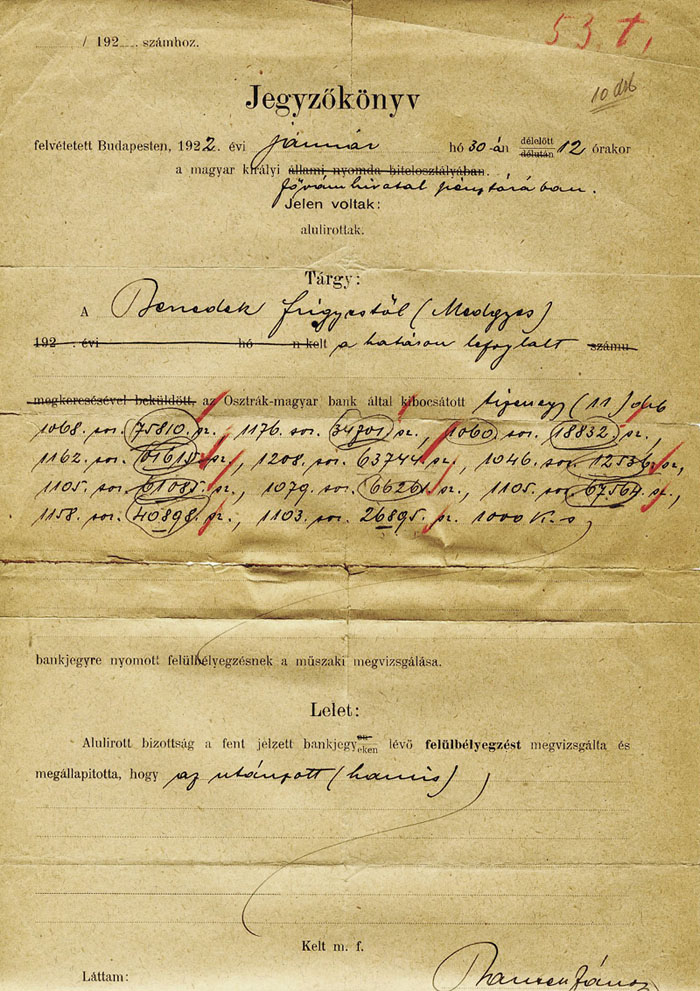 53. t.
/ 192 ..... számhoz.
10 drb
Jegyzőkönyv
felvétetett Budapesten, 1922. évi január hó 30-án délelőtt délután 12 órakor
a magyar királyi állami nyomda hitelosztályában.
fővámhivatal pénztárában.
Jelen voltak:
alulirottak.
Tárgy:
A Benedek Frigyestől (Medgyes)
192 . évi hó n kelt a határon lefoglalt számu
megkeresésével beküldött, az Osztrák-magyar bank által kibocsátott tizenegy (11) drb
1068. sor. 75810. sz., 1176. sor. 34701 sz., 1060. sor. 18832. sz.,
1162. sor. 01615. sz., 1208. sor. 63744. sz., 1046. sor. 12536. sz.,
1105. sor. 61085. sz., 1079. sor. 66261. sz., 1105. sor. 67564. sz.,
1158. sor. 40898. sz., 1103. sor. 26895. sz. 1000 K.-s
bankjegyre nyomott felülbélyegzésnek a műszaki megvizsgálása.
Lelet:
Alulirott bizottság a fent jelzett bankjegyen eken lévő felülbélyegzést megvizsgálta és
megállapitotta, hogy az utánzott (hamis)
Kelt m. f.
Láttam:
János